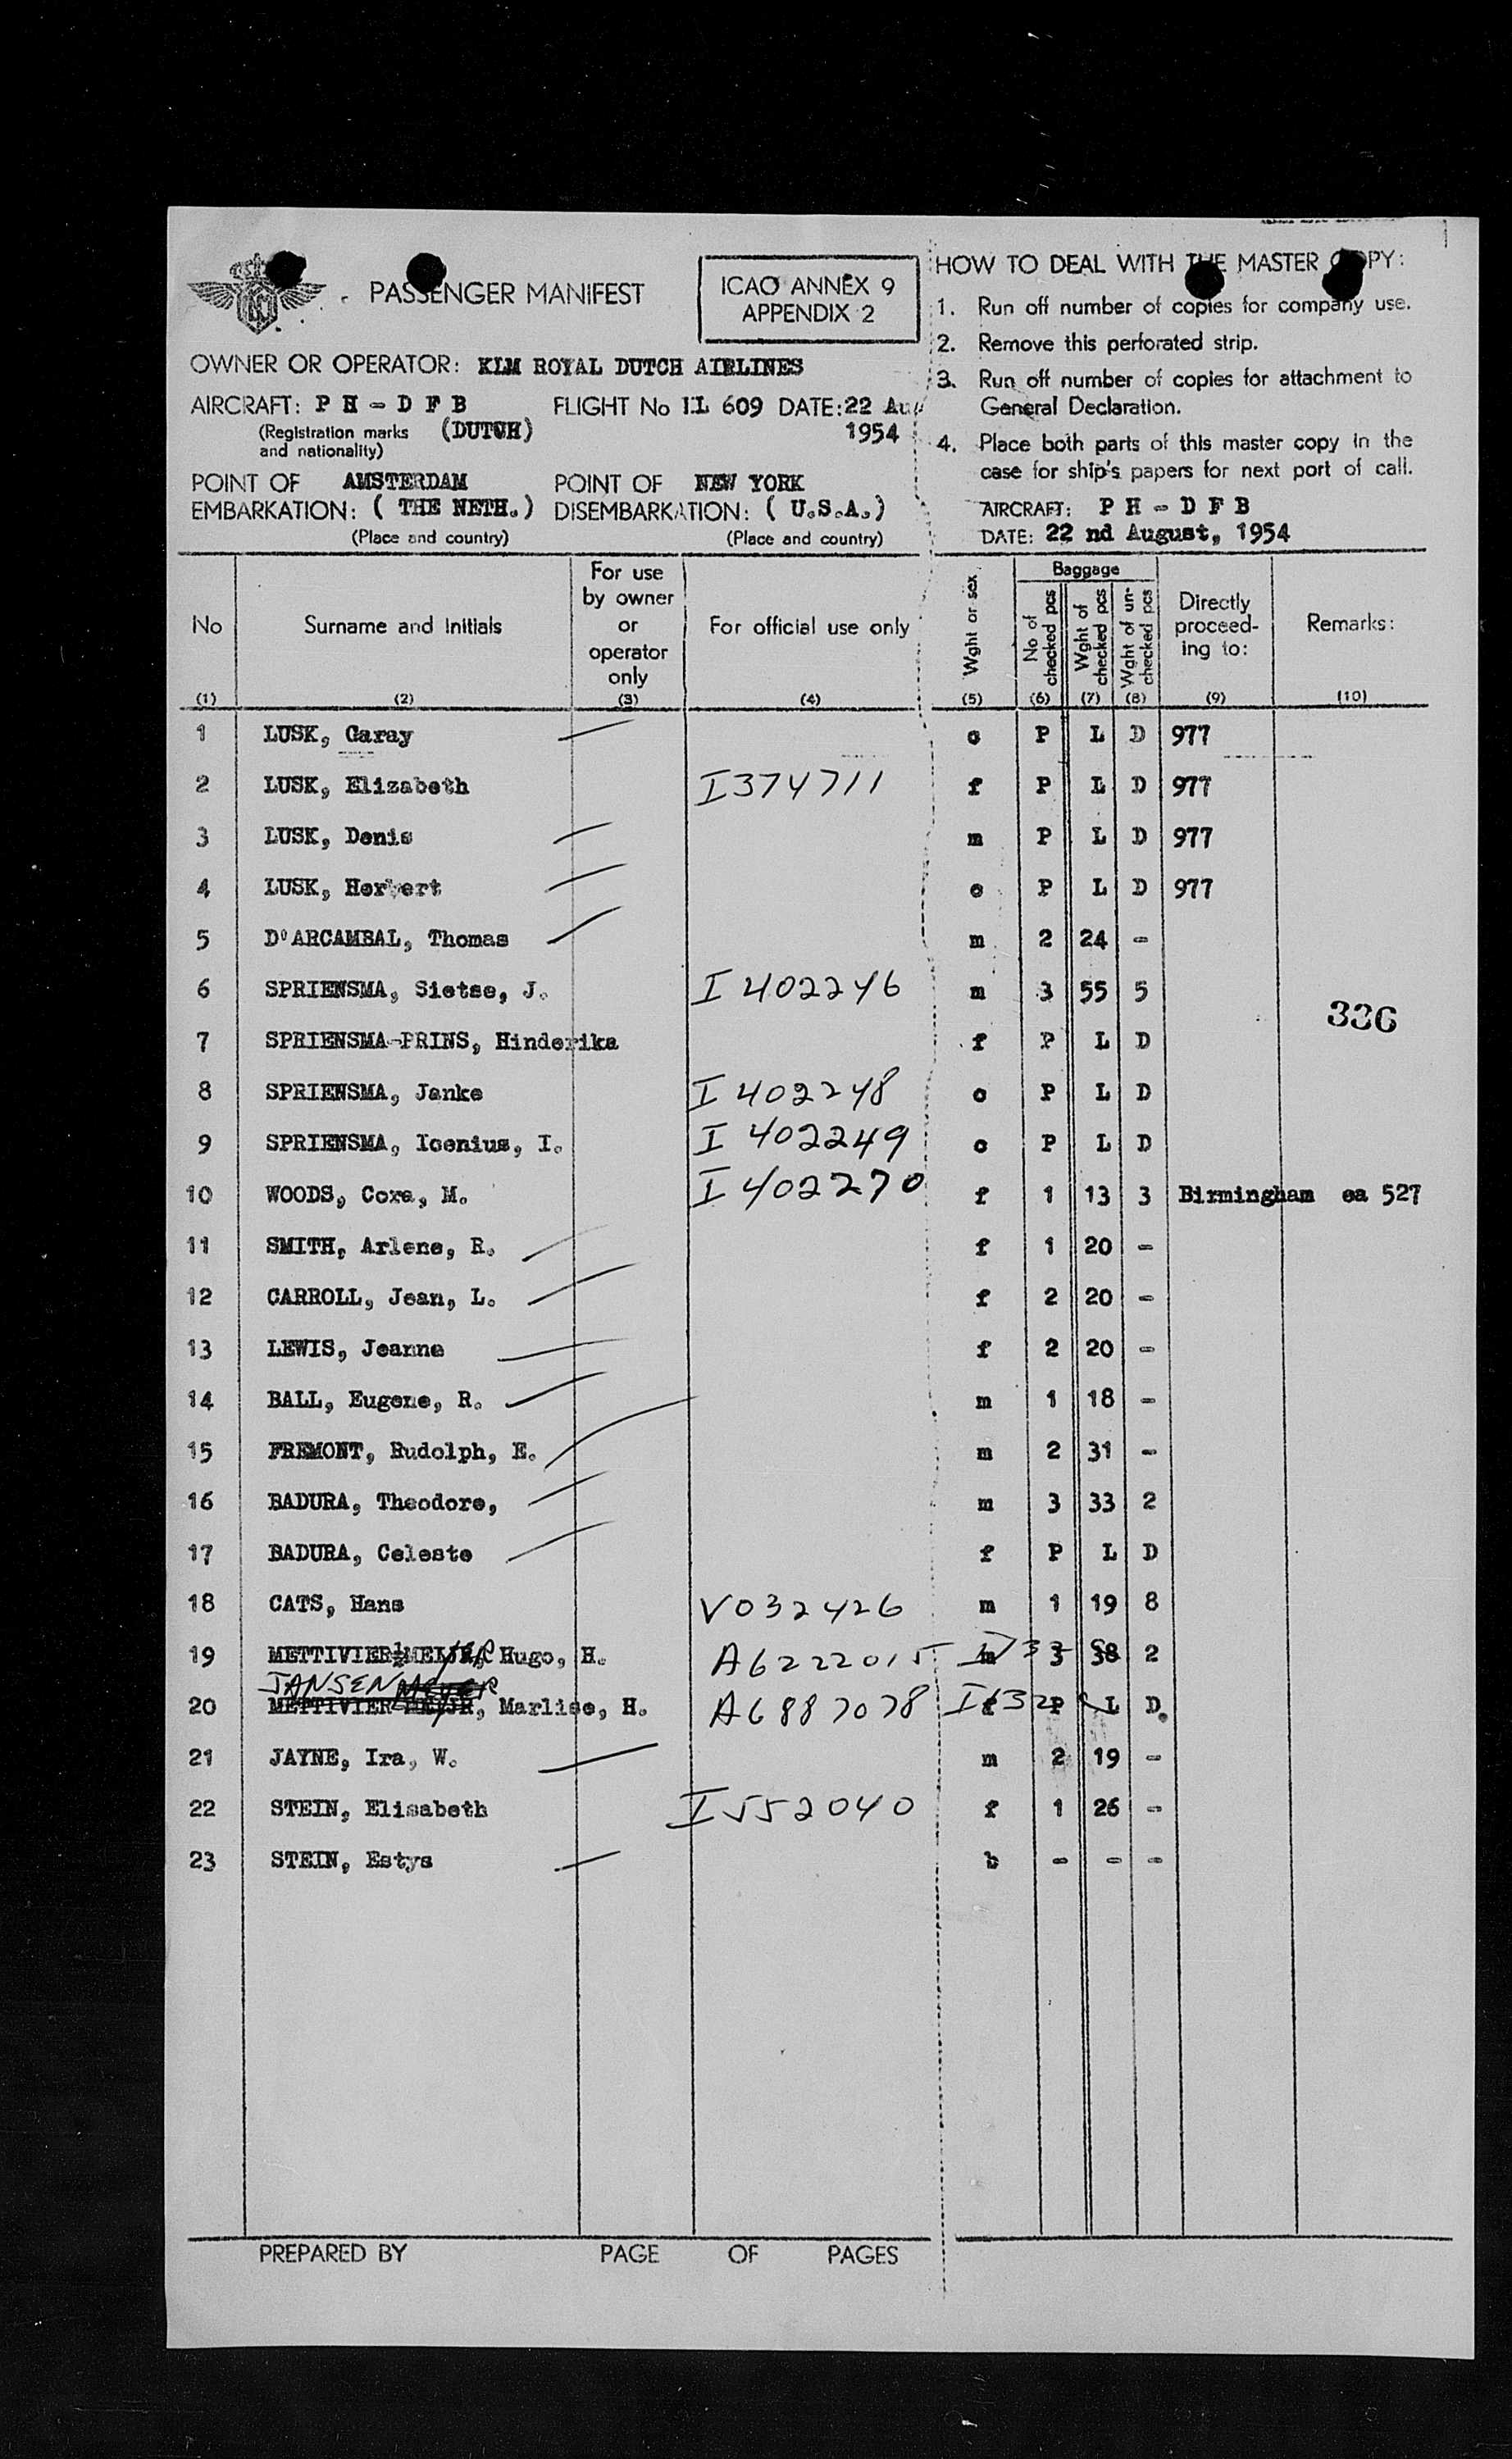 PASSENGER MANIFEST
ICAO ANNEX 9
APPENDIX 2
OWNER OR OPERATOR: KLM ROYAL DUTCH AIRLINES
AIRCRAFT: P H - D F B FLIGHT No KL 609 DATE: 22 Au
(Registration marks and nationality) (DUTCH) 1954
POINT OF EMBARKATION: AMSTERDAM ( THE NETH. ) POINT OF DISEMBARKATION: NEW YORK ( U.S.A. )
(Place and country) (Place and country)
HOW TO DEAL WITH THE MASTER COPY:
1. Run off number of copies for company use.
2. Remove this perforated strip.
3. Run off number of copies for attachment to
General Declaration.
4. Place both parts of this master copy in the
case for ship's papers for next port of call.
AIRCRAFT: P H - D F B
DATE: 22 nd August, 1954
No Surname and Initials For use by owner or operator only For official use only Wght or sex Baggage No of checked pcs Wght of checked pcs Wght of un-checked pcs Directly proceed-ing to: Remarks:
(1) (2) (3) (4) (5) (6) (7) (8) (9) (10)
1 LUSK, Garay c P L D 977
2 LUSK, Elizabeth I374711 f P L D 977
3 LUSK, Denis m P L D 977
4 LUSK, Herbert c P L D 977
5 D'ARCAMBAL, Thomas m 2 24 -
6 SPRIENSMA, Sietse, J. I 402246 m 3 55 5
336
7 SPRIENSMA-PRINS, Hinderika f P L D
8 SPRIENSMA, Janke I 402248 c P L D
9 SPRIENSMA, Icenius, I. I 402249 c P L D
10 WOODS, Cora, M. I 402270 f 1 13 3 Birmingham ea 527
11 SMITH, Arlene, R. f 1 20 -
12 CARROLL, Jean, L. f 2 20 -
13 LEWIS, Jeanne f 2 20 -
14 BALL, Eugene, R. m 1 18 -
15 FREMONT, Rudolph, E. m 2 31 -
16 BADURA, Theodore, m 3 33 2
17 BADURA, Celeste f P L D
18 CATS, Hans V032426 m 1 19 8
19 METTIVIER Hugo, H. A6222015 m 3 38 2
JANSEN
20 METTIVIER Marlise, H. A6887078 P L D.
21 JAYNE, Ira, W. m 2 19 -
22 STEIN, Elisabeth I552040 f 1 26 -
23 STEIN, Estys b - - -
PREPARED BY PAGE OF PAGES